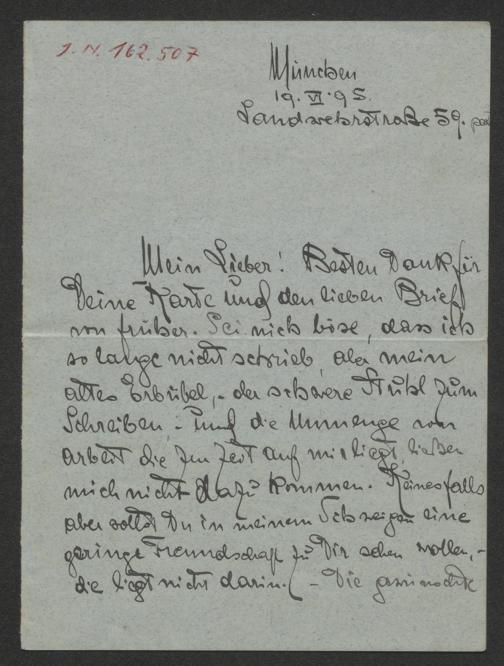 J. N. 162.507
München
19. VI. 95.
Landwehrstraße 59.
Mein Lieber! Besten Dank für
Deine Karte und den lieben Brief
von früher. Sei nich böse, dass ich
so lange nicht schrieb, aber mein
altes Erbübel, - der schwere Stuhl zum
Schreiben - und die Unmenge von
arbeit die zur Zeit auf mir liegt, ließen
mich nicht dazu kommen. Keinesfalls
aber sollst Du in meinem Schweigen eine
geringe Freundschaft zu Dir sehen wollen, -
die liegt nicht darin. - Die